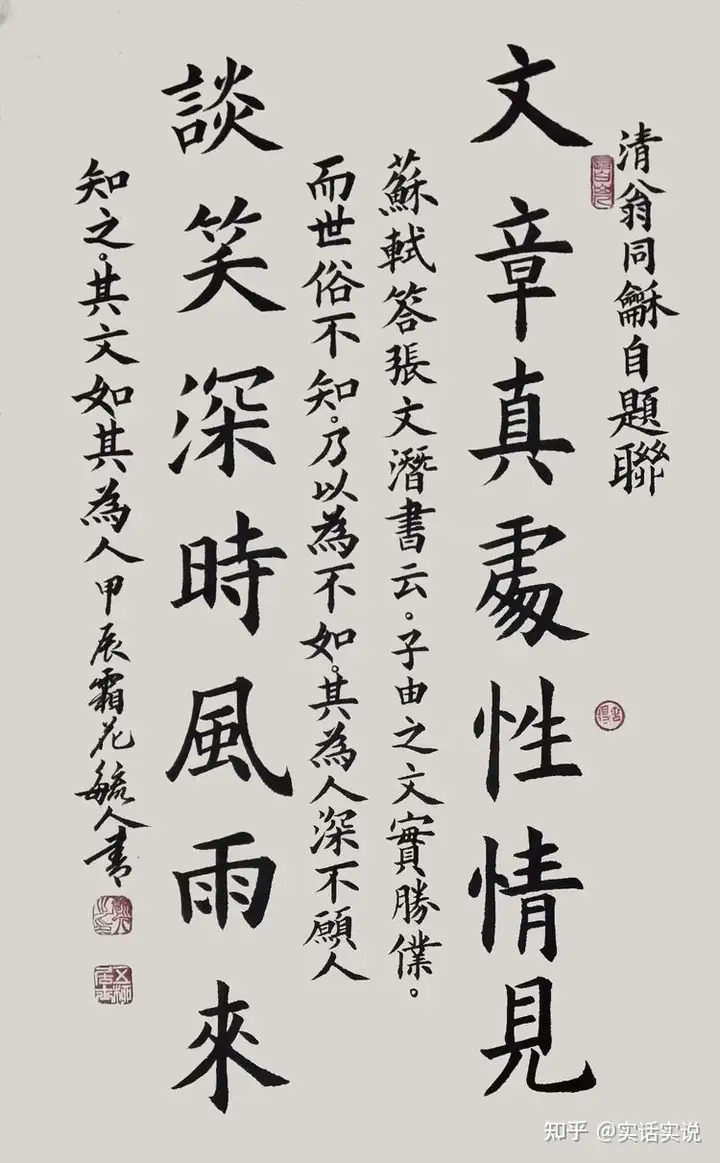 清翁同龢自題聯
文章真處性情見
蘇軾答張文潛書云。子由之文實勝僕。
而世俗不知。乃以為不如。其為人深不願人
談笑深時風雨來
知之。其文如其為人甲辰霜花毓人書
知乎 @实话实说